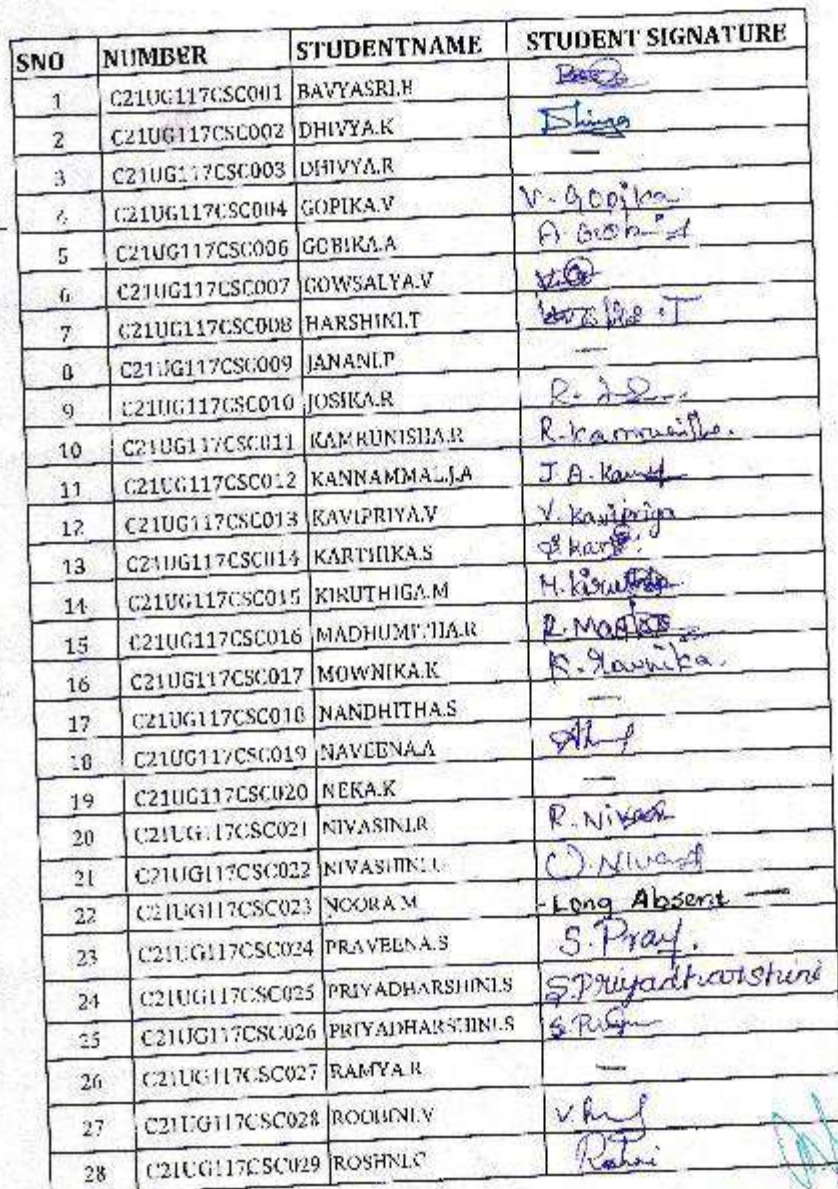 SNO NUMBER STUDENTNAME STUDENT SIGNATURE
1 C21UG117CSC001 BAVYASRI.H
2 C21UG117CSC002 DHIVYA.K
3 C21UG117CSC003 DHIVYA.R —
4 C21UG117CSC004 GOPIKA.V V. Gopika
5 C21UG117CSC006 GOBIKA.A
6 C21UG117CSC007 GOWSALYA.V
7 C21UG117CSC008 HARSHINI.T
8 C21UG117CSC009 JANANI.P —
9 C21UG117CSC010 JOSIKA.R
10 C21UG117CSC011 KAMRUNISHA.R R. Kamrunisha.
11 C21UG117CSC012 KANNAMMAL.J.A J. A.
12 C21UG117CSC013 KAVIPRIYA.V V. Kavipriya
13 C21UG117CSC014 KARTHIKA.S
14 C21UG117CSC015 KIRUTHIGA.M
15 C21UG117CSC016 MADHUMITHA.R
16 C21UG117CSC017 MOWNIKA.K
17 C21UG117CSC018 NANDHITHA.S —
18 C21UG117CSC019 NAVEENA.A
19 C21UG117CSC020 NEKA.K —
20 C21UG117CSC021 NIVASINI.R
21 C21UG117CSC022 NIVASHINI.U
22 C21UG117CSC023 NOORA.M - Long Absent —
23 C21UG117CSC024 PRAVEENA.S S. Prav.
24 C21UG117CSC025 PRIYADHARSHINI.S S. Priyadharshini
25 C21UG117CSC026 PRIYADHARSHINI.S
26 C21UG117CSC027 RAMYA.R —
27 C21UG117CSC028 ROOBINI.V
28 C21UG117CSC029 ROSHNI.C Roshni